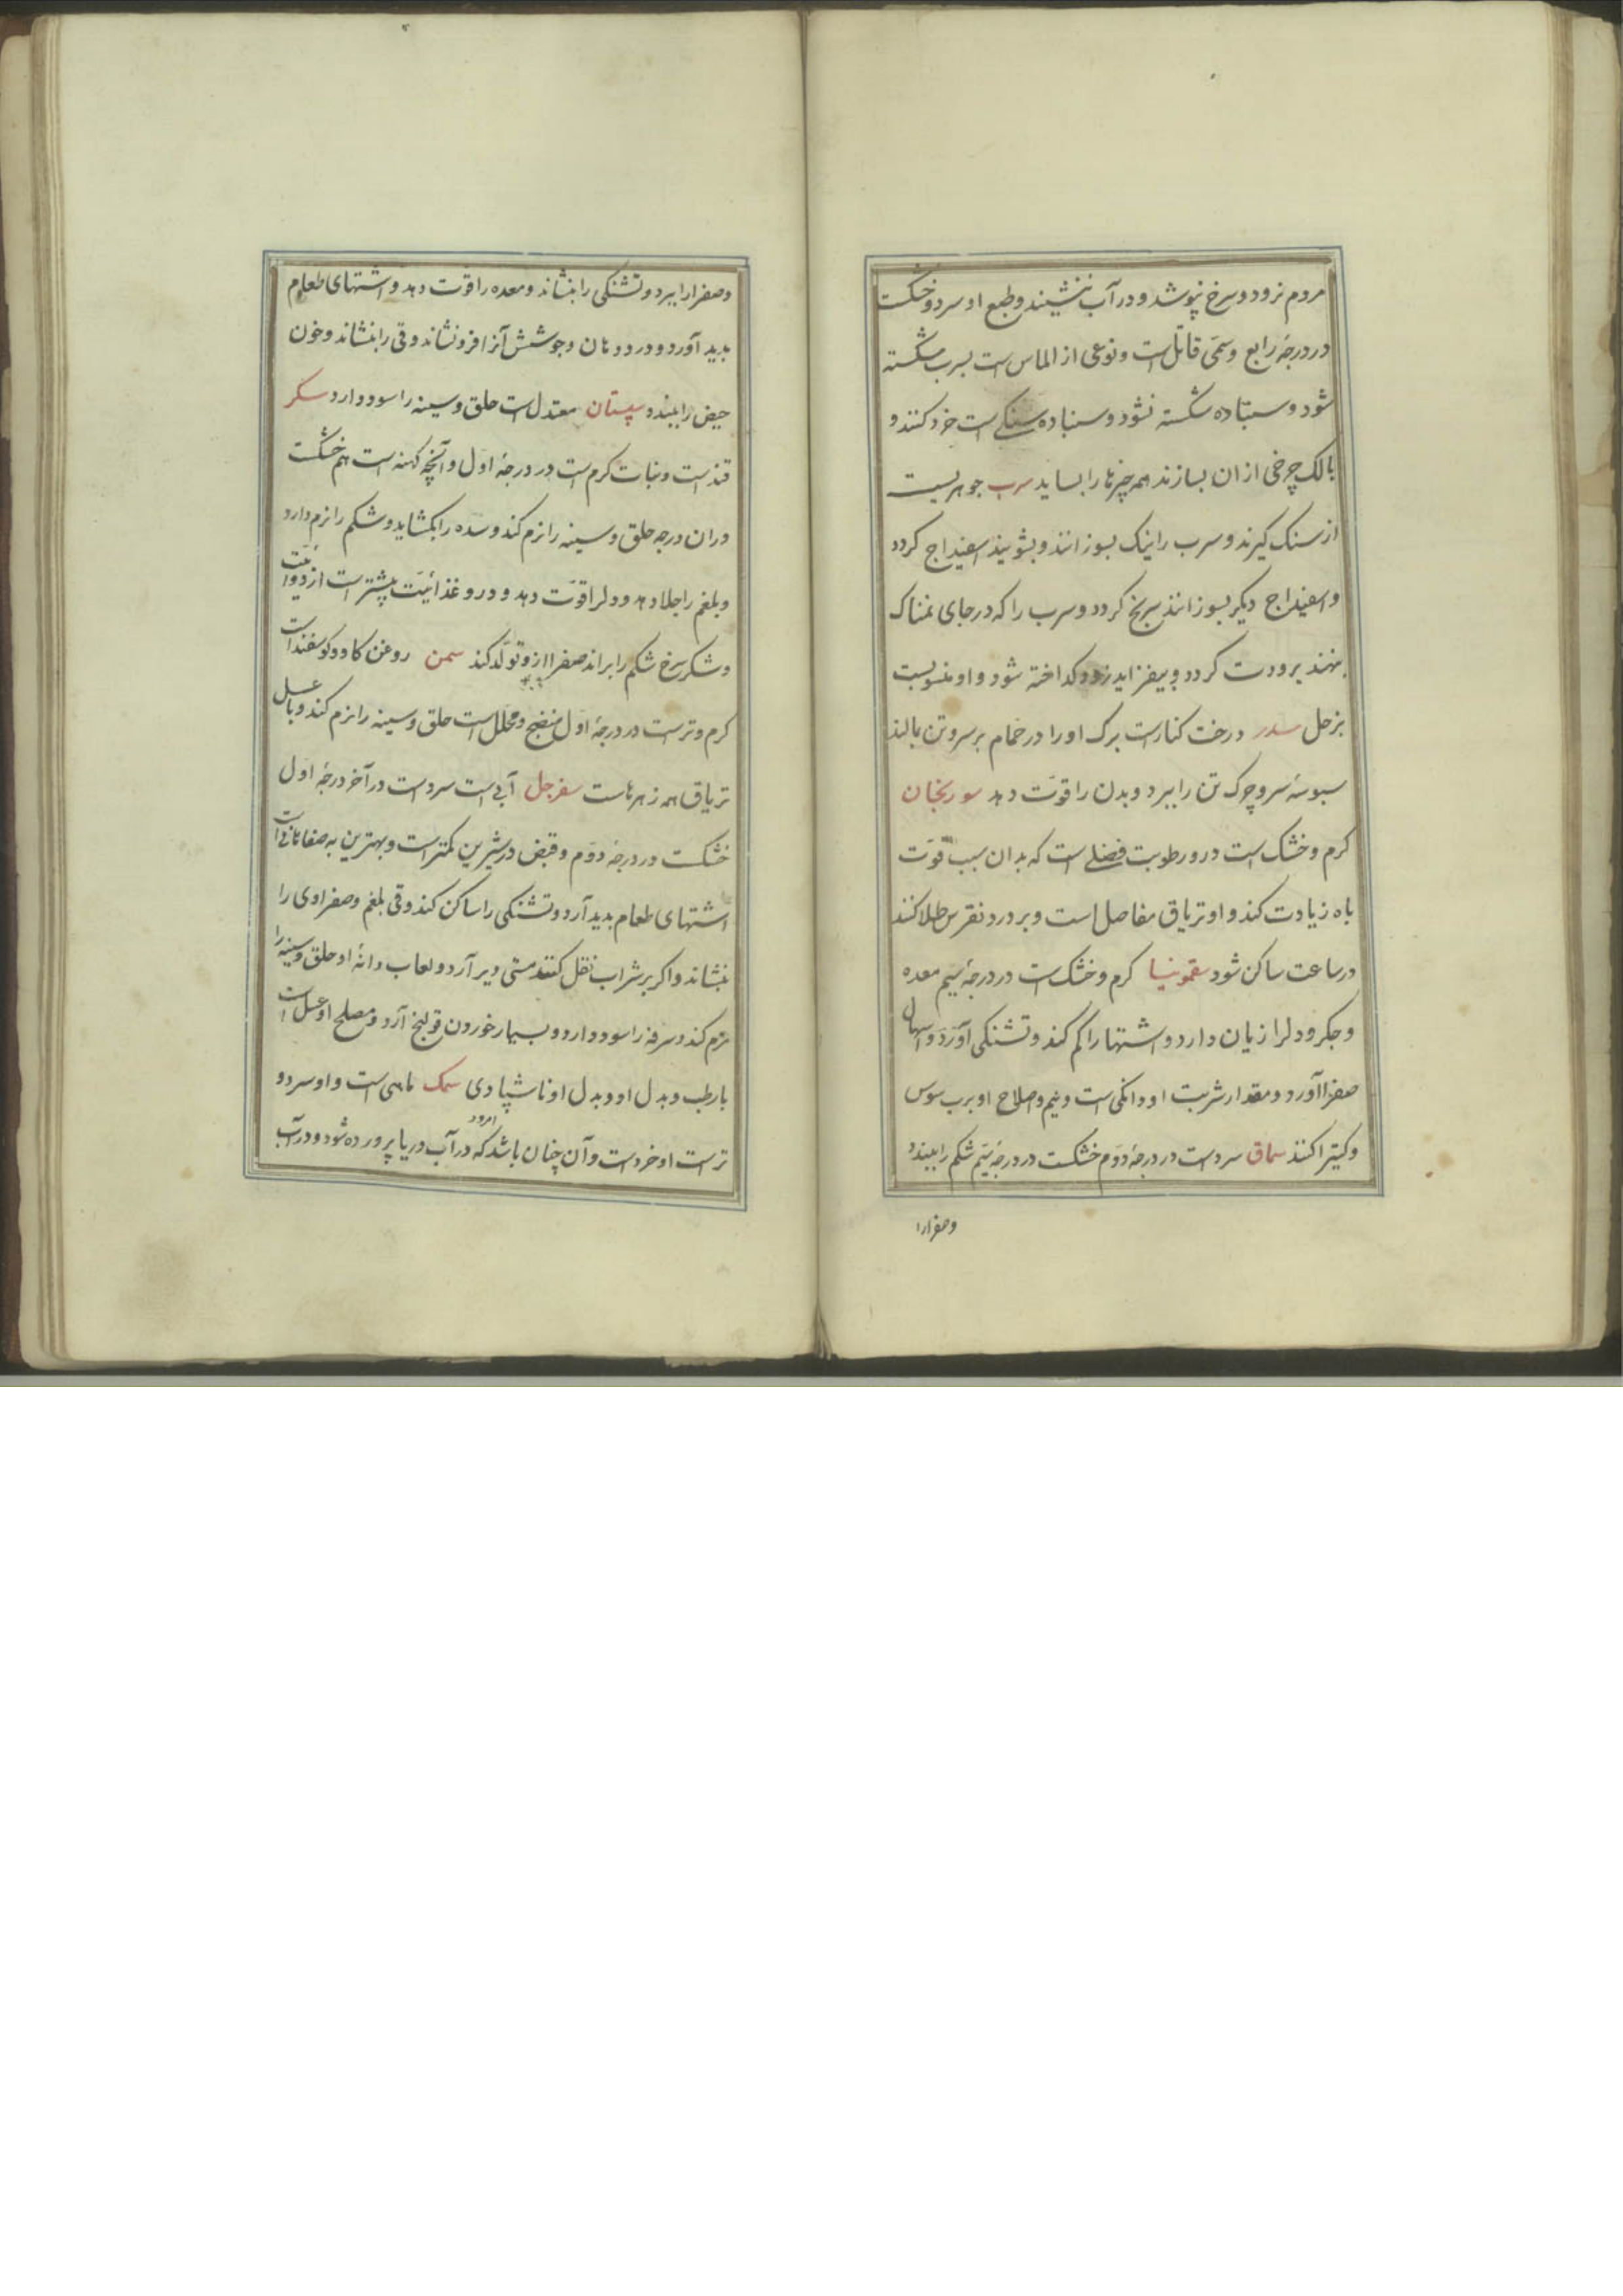 مردم نرود و سرخ نپوشد و در آب ننشیند و طبع او سرد و خشکست
در درجهٔ رابع و سمّی قاتل است و نوعی از الماس است بسرب شکسته
شود و بسنباده شکسته نشود و سنباده سنکی است خرد کنند و
بالک چرخی ازان بسازند همه چیزها را بساید سرب جوهریست
از سنک کیرند و سرب را نیک بسوزانند و بشویند اسفیداج کردد
و اسفیداج دیکر بسوزانند سرنج کردد و سرب را که در جای نمناک
بنهند برودت کردد و بیفزاید زود کداخته شود و او منسوبست
بزحل سدر درخت کنارست برک او را در حمام بر سر و تن مالند
سبوسهٔ سر و چرک تن را ببرد و بدن را قوّت دهد سورنجان
کرم و خشک است درو رطوبت فضلی است که بدان سبب قوّت
باه زیادت کند و او تریاق مفاصل است و بر درد نقرس طلا کنند
در ساعت ساکن شود سقمونیا کرم و خشکست در درجهٔ سیم معده
و جکر و دل را زیان دارد و اشتها را کم کند و تشنکی آورد و اسهال
صفرا آورد و مقدار شربت او دانکی است و نیم و اصلاح او برب سوس
و کتیرا کنند سماق سردست در درجهٔ دوّم خشکست در درجهٔ سیّم شکم را ببندد
و صفرا را
و صفرا را ببرد و تشنکی را بنشاند و معده را قوت دهد و اشتهای طعام
بدید آورد و درد دهان و جوشش آنرا فرو نشاند و قی را بنشاند و خون
حیض را ببندد سپستان معتدل است حلق و سینه را سود دارد سکر
قندست و نبات کرم است در درجهٔ اول و آنچه کهنه است هم خشکست
در ان درجه حلق و سینه را نرم کند و سده را بکشاید و شکم را نرم دارد
و بلغم را جلا دهد و دل را قوّت دهد و درو غذائیّت بیشتر است از دوائیّت
و شکر سرخ شکم را براند صفرا ازو تولّد کند سمن روغن کاو و کوسفند است
کرم و ترست در درجهٔ اول منضج و محلل است حلق و سینه را نرم کند و با عسل
تریاق همه زهرهاست سفرجل آبی است سردست در آخر درجهٔ اوّل
خشکست در درجهٔ دوّم و قبض در شیرین کمتر است و بهترین به صفاهانی است
اشتهای طعام بدید آرد و تشنکی را ساکن کند و قی بلغم و صفراوی را
بنشاند و اکر بر شراب نقل کنند مستی دیر آرد و لعاب دانهٔ او حلق و سینه را
نرم کند و سرفه را سود دارد و بسیار خوردن قولنج آرد و مصلح او عسل است
یا رطب و بدل او و بدل او ناشپاردی سمک ماهی است و او سرد و
امرود
ترست او خردست و آن چنان باشد که در آب دریا پرورده شود و در آب